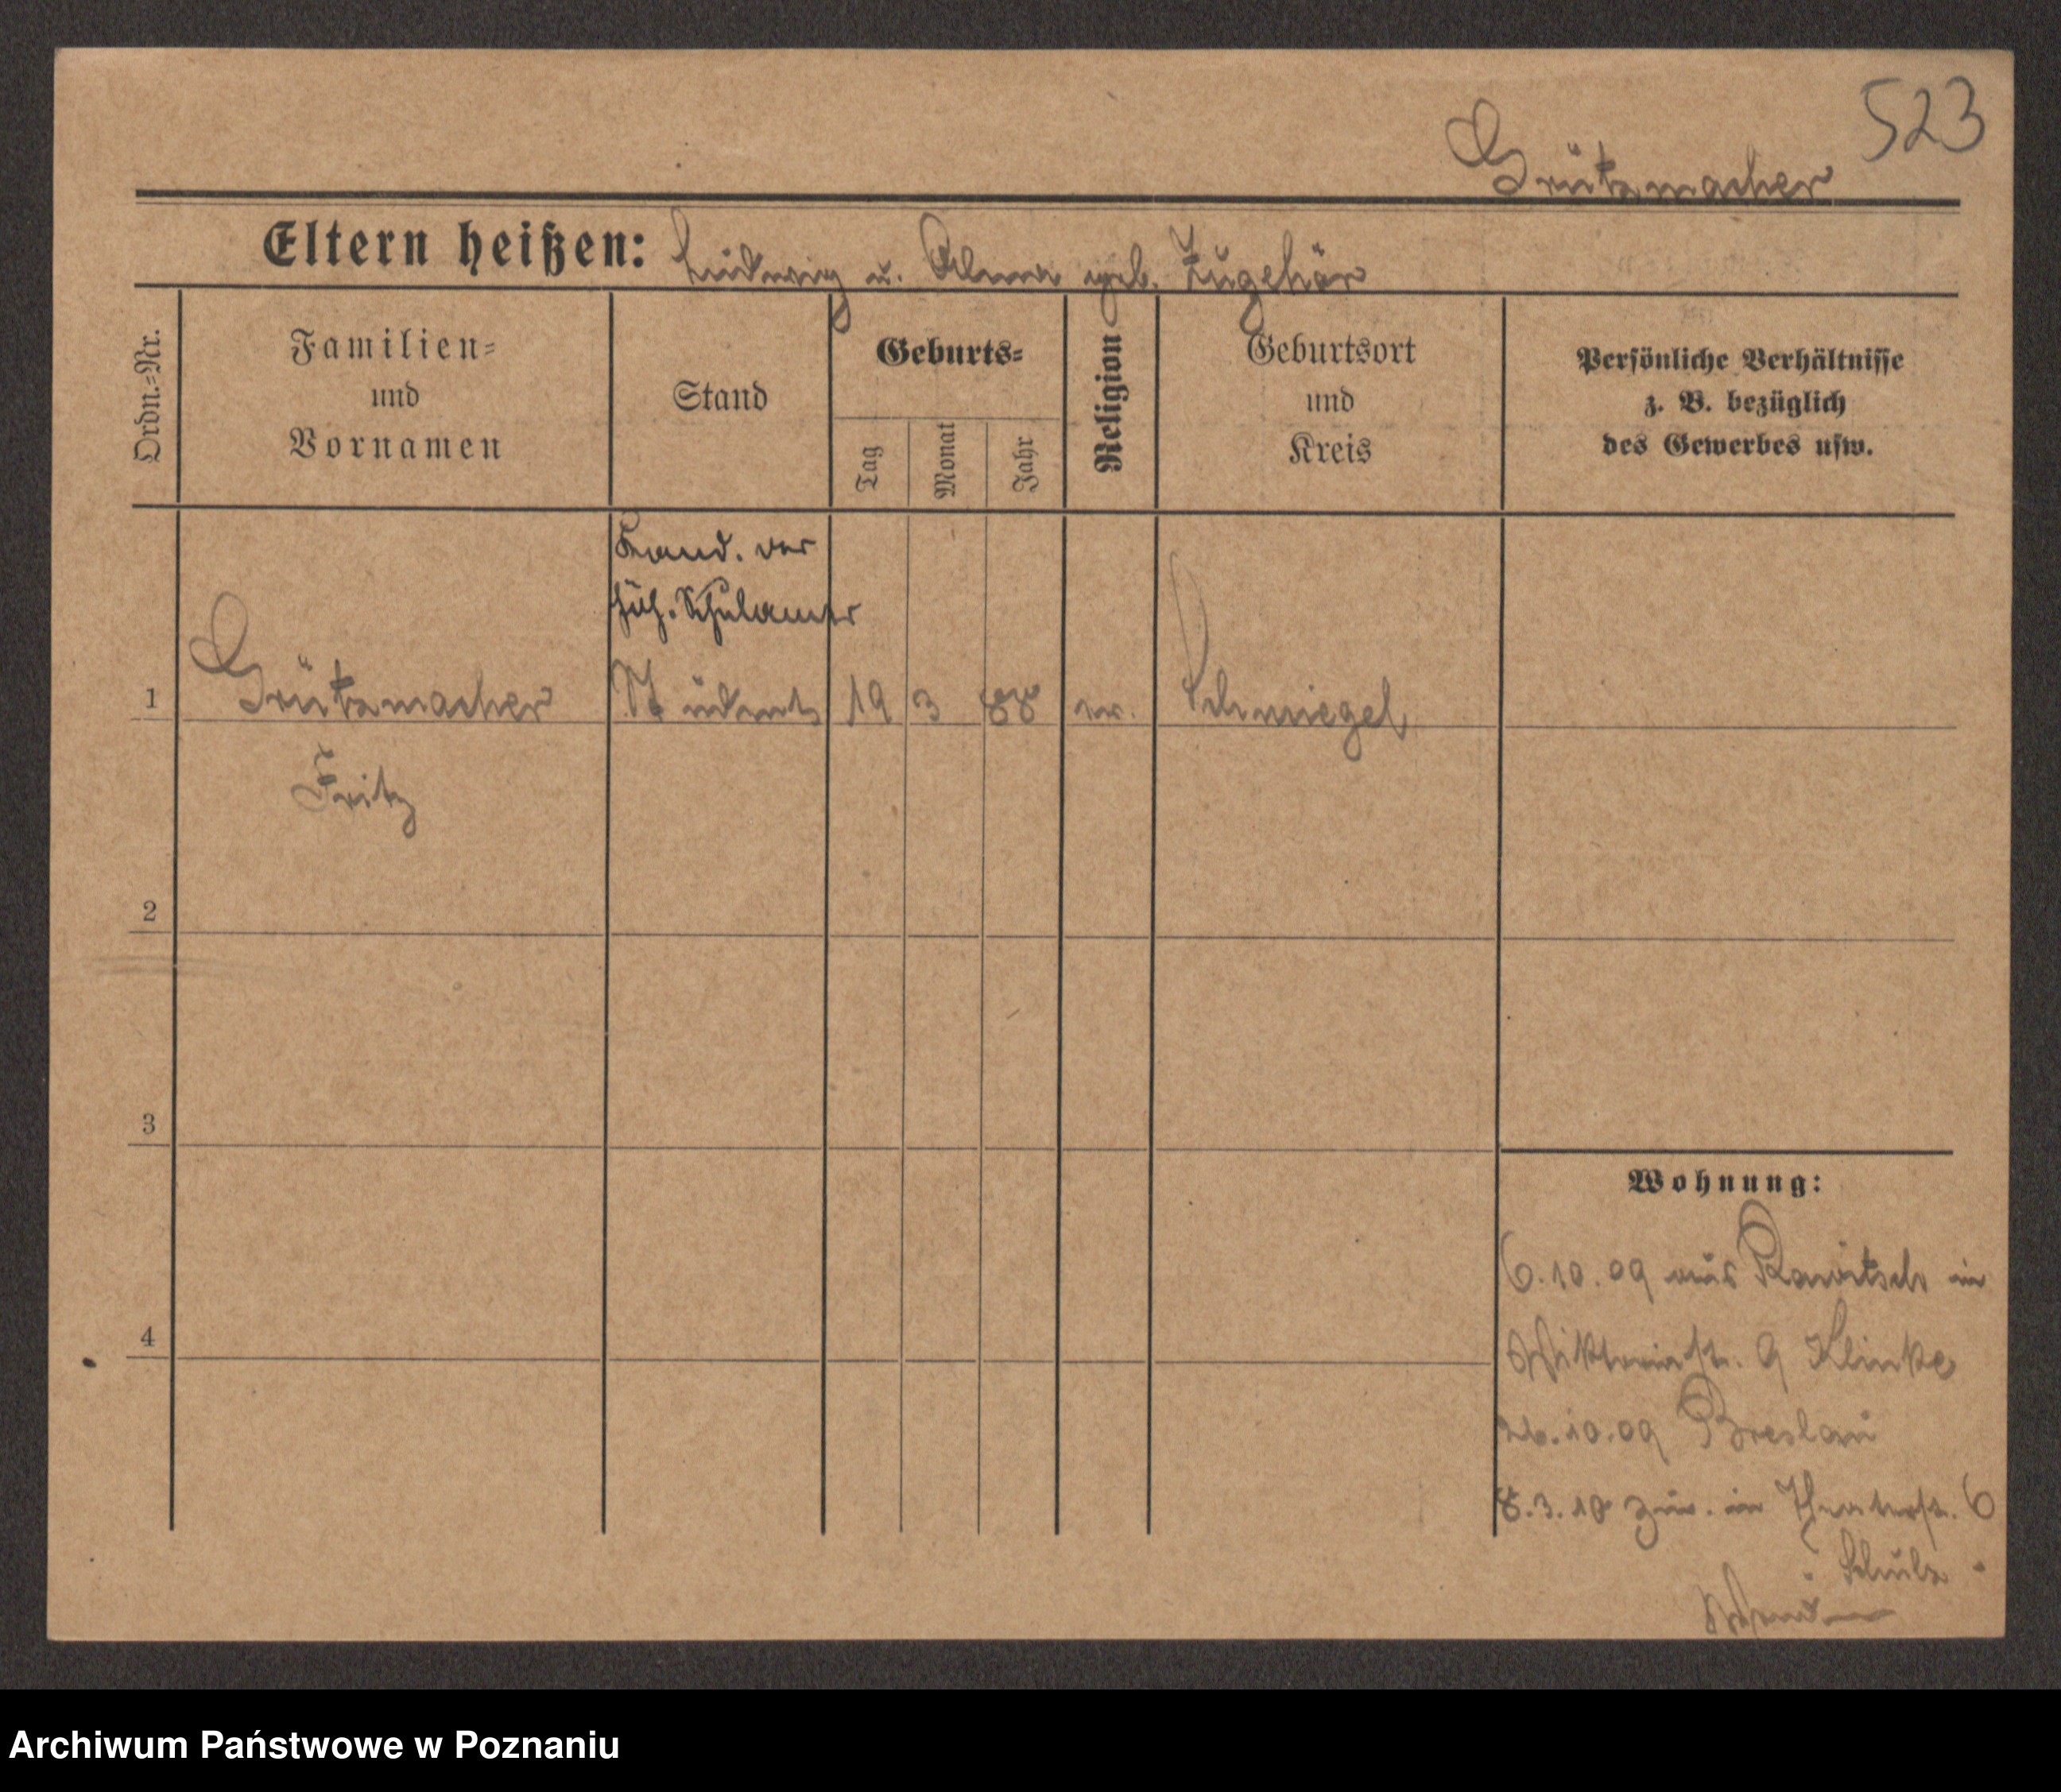 523
Grützmacher
Eltern heißen: Ludwig u. Alma geb. Zugehör
Ordn.-Nr.
Familien-
und
Vornamen
Stand
Geburts-
Tag
Monat
Jahr
Religion
Geburtsort
und
Kreis
Persönliche Verhältnisse
z. B. bezüglich
des Gewerbes usw.
Kand. des
höh. Schulamts
1 Grützmacher Student 19 3 88 ev. Schmiegel
Fritz
2
3
Wohnung:
6.10.09 aus Rawitsch in
Viktoriastr. 9 Klinke
4
26.10.09 Breslau
8.3.10 zur. in Theaterstr. 6
Schulz
Archiwum Państwowe w Poznaniu